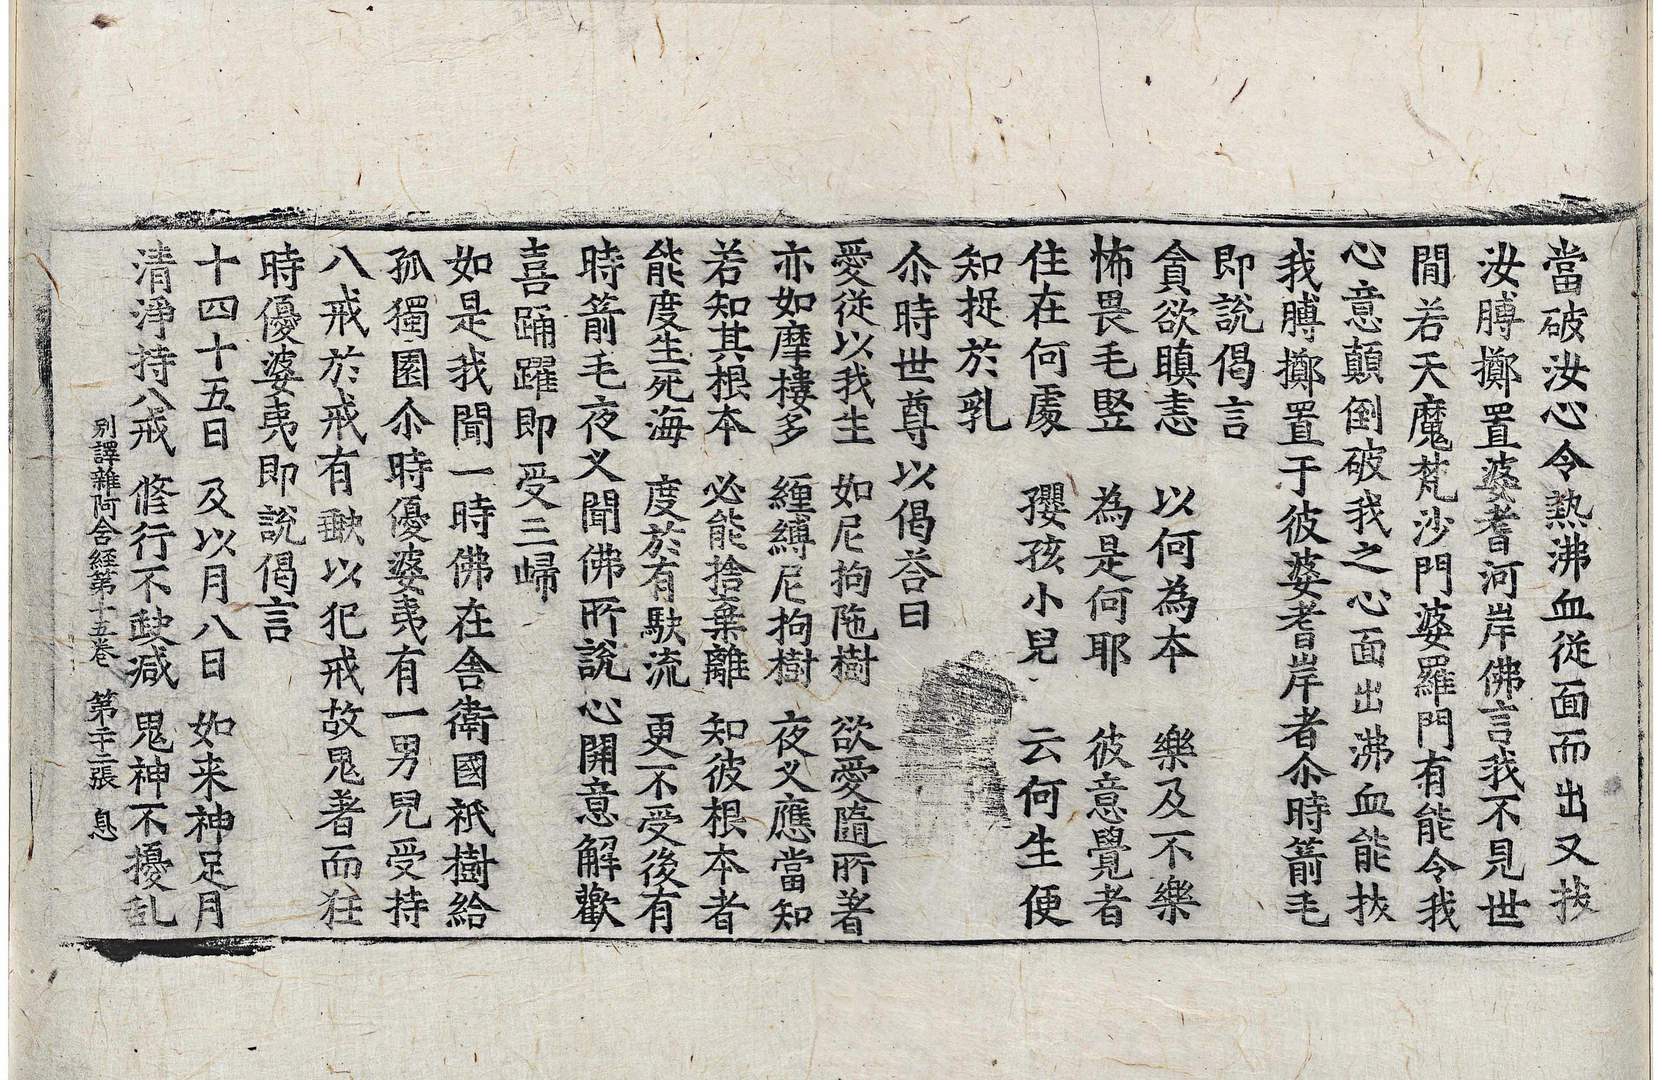 當破汝心令熱沸血從面而出又捘
汝膊擲置婆耆河岸佛言我不見世
間若天魔梵沙門婆羅門有能令我
心意顛倒破我之心面出沸血能捘
我膊擲置于彼婆耆岸者尒時箭毛
即說偈言
貪欲瞋恚　以何為本　樂及不樂
怖畏毛竪　為是何耶　彼意覺者
住在何處　孾孩小兒　云何生便
知捉於乳
尒時世尊以偈荅曰
愛從以我生　如尼拘陁樹　欲愛隨所著
亦如摩樓多　纏縛尼拘樹　夜叉應當知
若知其根本　必能捨棄離　知彼根本者
能度生死海　度於有駛流　更不受後有
時箭毛夜叉聞佛所說心開意解歡
喜踊躍即受三歸
如是我聞一時佛在舍衛國祇樹給
孤獨園尒時優婆夷有一男兒受持
八戒於戒有缺以犯戒故鬼著而狂
時優婆夷即說偈言
十四十五日　及以月八日　如來神足月
清淨持八戒　脩行不缺減　鬼神不擾乱
別譯雜阿含經第十五卷　第二十二張　息